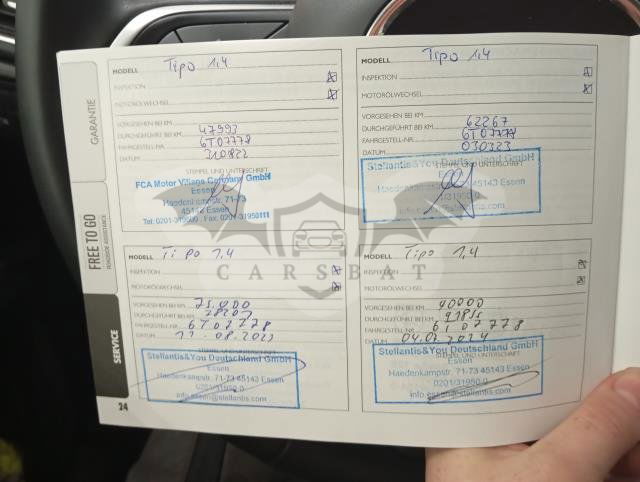 GARANTIE
FREE TO GO
ROADSIDE ASSISTANCE
SERVICE
24
MODELL Tipo 1,4
INSPEKTION
MOTORÖLWECHSEL
VORGESEHEN BEI KM
DURCHGEFÜHRT BEI KM 47993
FAHRGESTELL-NR. 6T07778
DATUM 310822
STEMPEL UND UNTERSCHRIFT
FCA Motor Village Germany GmbH
Essen
Haedenkampstr. 71-73
45143 Essen
Tel: 0201-319500 Fax: 0201-31950111
MODELL Tipo 1,4
INSPEKTION
MOTORÖLWECHSEL
VORGESEHEN BEI KM
DURCHGEFÜHRT BEI KM 62267
FAHRGESTELL-NR. 6T07778
DATUM 030323
Stellantis&You Deutschland GmbH
Essen
45143 Essen
MODELL Tipo 1,4
INSPEKTION
MOTORÖLWECHSEL
VORGESEHEN BEI KM 75.000
DURCHGEFÜHRT BEI KM
FAHRGESTELL-NR. 6T07778
DATUM
Stellantis&You Deutschland GmbH
Essen
Haedenkampstr. 71-73 45143 Essen
0201/31950-0
info.essen@stellantis.com
MODELL Tipo 1,4
INSPEKTION
MOTORÖLWECHSEL
VORGESEHEN BEI KM 90000
DURCHGEFÜHRT BEI KM
FAHRGESTELL-NR. 6T07778
DATUM
STEMPEL UND UNTERSCHRIFT
Stellantis&You Deutschland GmbH
Essen
Haedenkampstr. 71-73 45143 Essen
0201/31950-0
info.essen@stellantis.com
CARSBAT